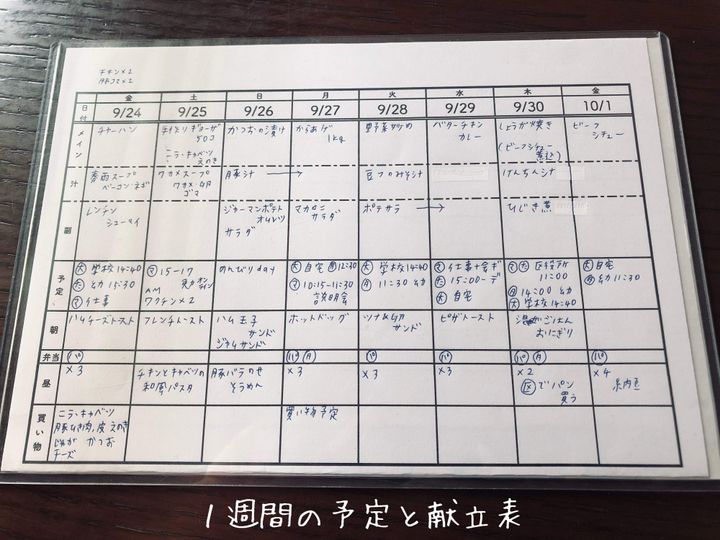 チキン×2
金 土 日 月 火 水 木 金
日付 9/24 9/25 9/26 9/27 9/28 9/29 9/30 10/1
メイン
チャーハン
ギョーザ
50コ
ニラ・キャベツ
えのき
かつおの漬け
からあげ
1kg
野菜炒め
バターチキン
カレー
しょうが焼き
(ビーフシチュー
煮込)
ビーフ
シチュー
汁
春雨スープ
ベーコン・ネギ
ワカメスープ
ワカメ
ゴマ
豚汁 →
豆フのみそ汁
けんちん汁
副
レンチン
シューマイ
ジャーマンポテト
オムレツ
サラダ
マカロニ
サラダ
ポテサラ →
ひじき煮
予定
大 学校14:40
た 15:30
マ 仕事
マ 15-17
オンライン
AM
ワクチン×2
のんびりday
大 自宅 12:30
マ 10:15-11:30
説明会
大 学校14:40
11:30
マ 仕事+会ギ
た 15:00-デ
大 自宅
マ た 区役所
11:00
14:00
大 学校14:40
大 自宅
11:30
朝
ハムチーズトースト
フレンチトースト
ハム玉子
サンド
ジャムサンド
ホットドッグ
サンド
ピザトースト
おにぎり
弁当 パ パ 月 パ パ パ 月 パ
昼
×3
チキンとキャベツの
和風パスタ
豚バラのせ
そうめん
×3
×3
×3
×2
区でパン
買う
×4
買い物
ニラ・キャベツ
豚ひき肉、皮 えのき
じゃが かつお
チーズ
買い物予定
1週間の予定と献立表